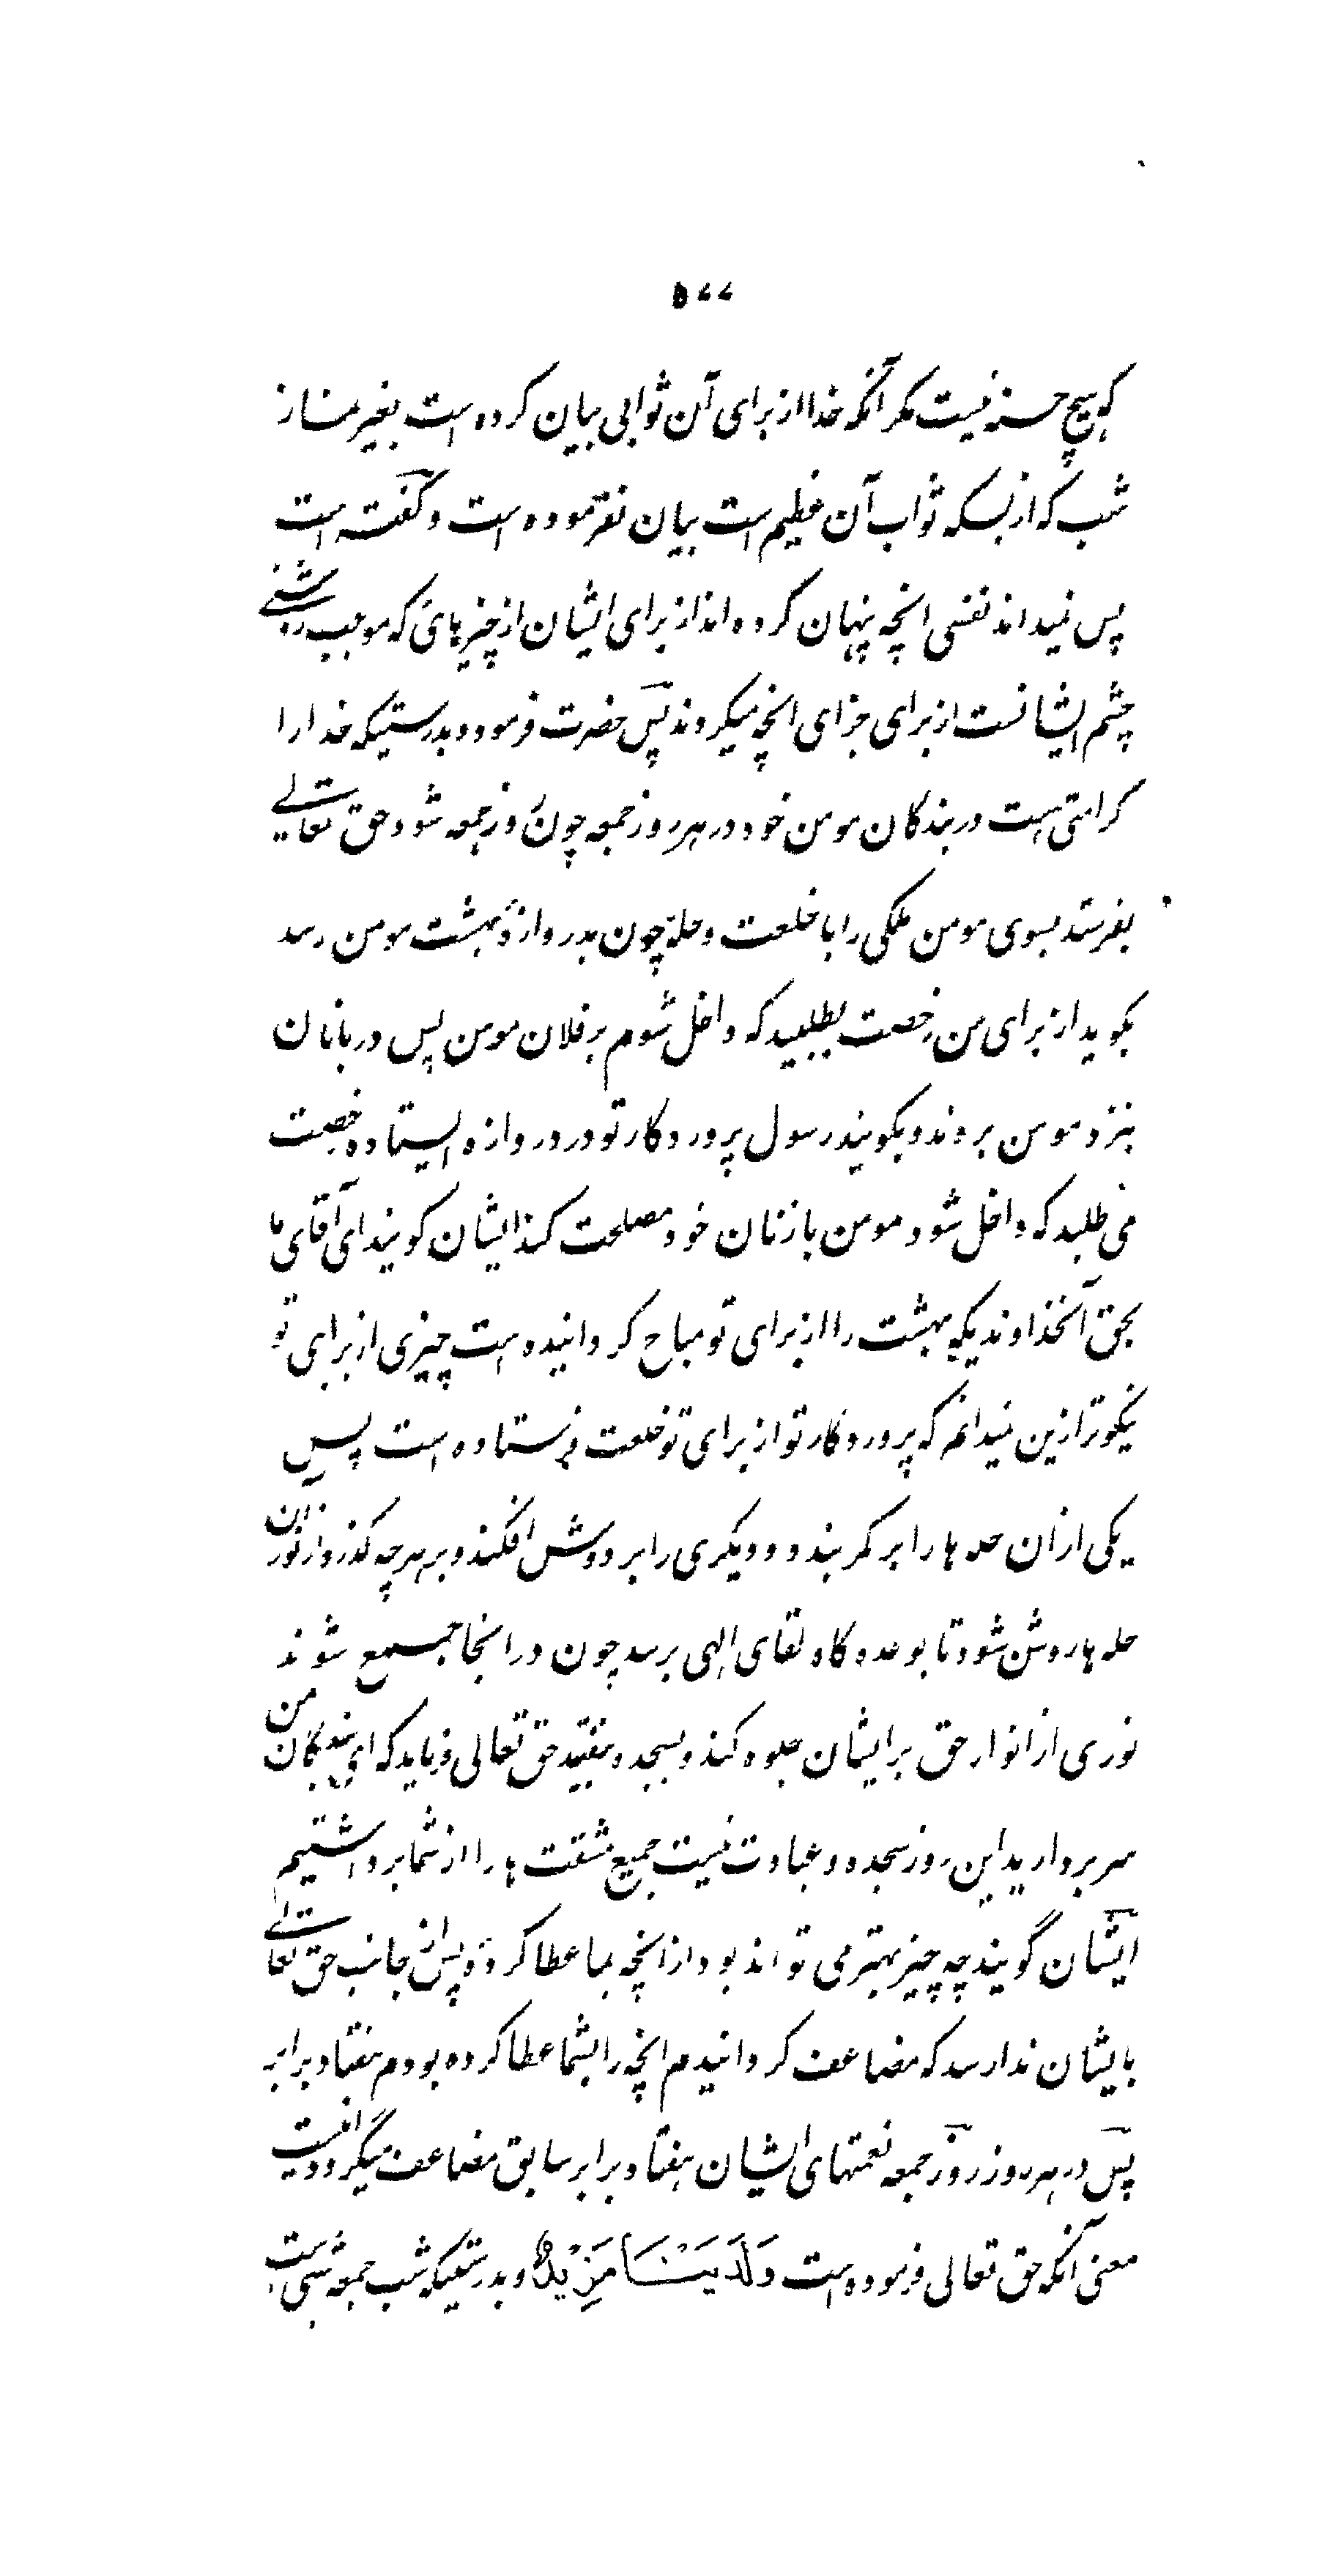 ۵۷۷
که هیچ حسنه نیست مکر آنکه خدا از برای آن ثوابی بیان کرده است بغیر نماز
شب که از بسکه ثواب آن عظیم است بیان نفرموده است و گفته است
پس نمیداند نفسی انچه پنهان کرده اند از برای ایشان از چیزهائی که موجب روشنی
چشم ایشانست از برای جزای انچه میکردند پس حضرت فرموده بدرستیکه خدا را
کرامتی هست در بندکان مومن خود در هر روز جمعه چون روز جمعه شود حق تعالی
بفرستد بسوی مومن ملکی را با خلعت و حله چون بدروازهٔ بهشت مومن رسد
بکوید از برای من رخصت بطلبید که داخل شوم بر فلان مومن پس دربانان
بنزد مومن بروند و بکویند رسول پروردکار تو در دروازه ایستاده رخصت
می طلبد که داخل شود مومن با زنان خود مصلحت کند ایشان کویند ای آقای ما
بحق آنخداوندیکه بهشت را از برای تو مباح کردانیده است چیزی از برای تو
نیکوتر ازین نمیدانم که پروردکار تو از برای تو خلعت فرستاده است پس
یکی ازان حله ها را بر کمر بندد و دیکری را بر دوش افکند و بر هر چه کذرد از نور ان
حله ها روشن شود تا بوعده کاه لقای الهی برسد چون در انجا جمع شوند
نوری از انوار حق بر ایشان جلوه کند و بسجده بیفتند حق تعالی فرماید که ای بندکان من
سر بردارید این روز سجده و عبادت نیست جمیع مشقت ها را از شما برداشتیم
ایشان گویند چه چیز بهتر می تواند بود از انچه بما عطا کردهٔ پس از جانب حق تعالی
بایشان ندا رسد که مضاعف کردانیدم انچه را بشما عطا کرده بودم هفتاد برابر
پس در هر روز روز جمعه نعمتهای ایشان هفتاد برابر سابق مضاعف میگردد اینست
معنی آنکه حق تعالی فرموده است وَلَدَیْنَا مَزِیْدٌ و بدرستیکه شب جمعه شبی ست